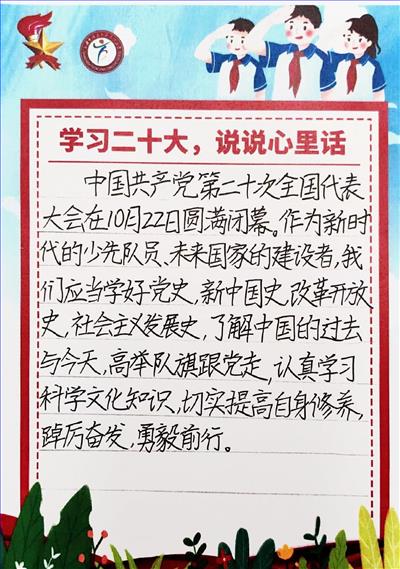 学习二十大，说说心里话
中国共产党第二十次全国代表
大会在10月22日圆满闭幕。作为新时
代的少先队员、未来国家的建设者，我
们应当学好党史，新中国史，改革开放
史，社会主义发展史，了解中国的过去
与今天，高举队旗跟党走，认真学习
科学文化知识，切实提高自身修养，
踔厉奋发，勇毅前行。